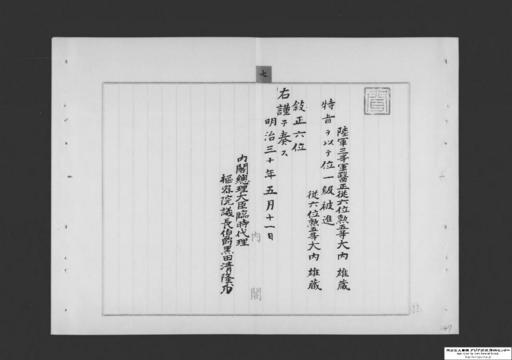 七
陸軍三等軍醫正從六位勲五等大内雄藏
特旨ヲ以テ位一級被進
從六位勲五等大内雄藏
敍正六位
右謹テ奏ス
明治三十年五月十一日
内閣總理大臣臨時代理
樞密院議長伯爵黒田清隆
内閣